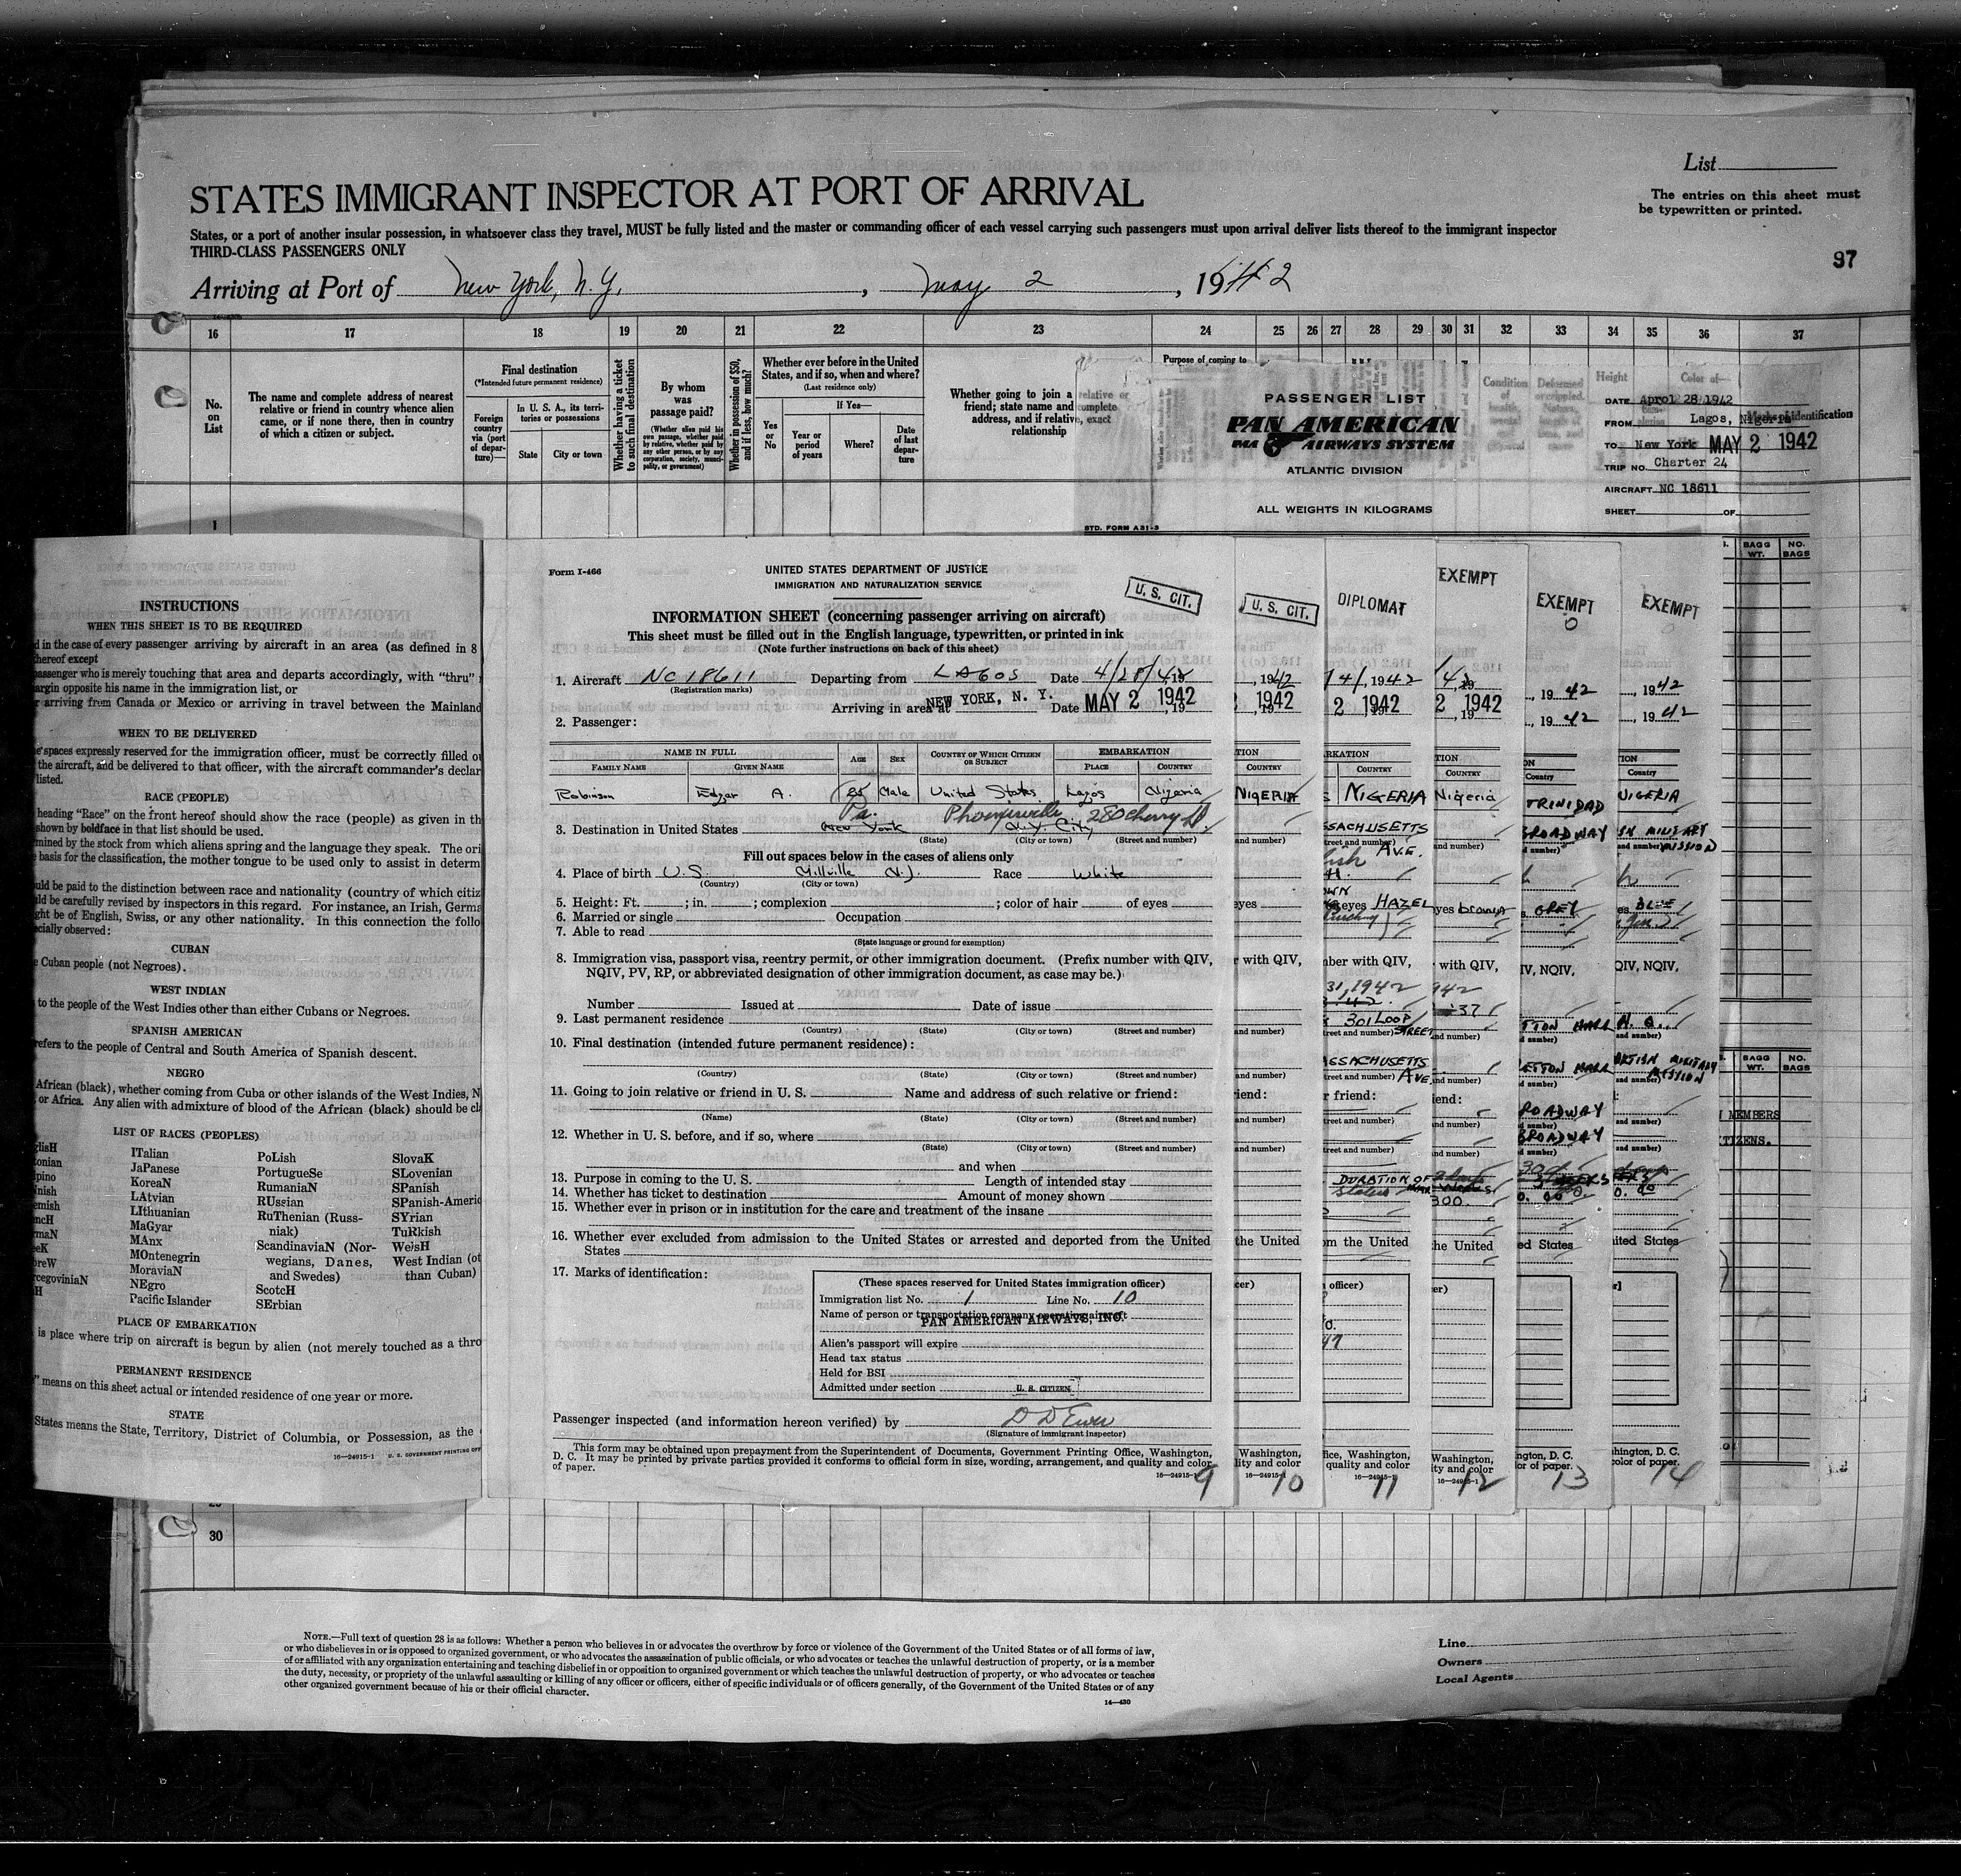 List
The entries on this sheet must
be typewritten or printed.
STATES IMMIGRANT INSPECTOR AT PORT OF ARRIVAL
States, or a port of another insular possession, in whatsoever class they travel, MUST be fully listed and the master or commanding officer of each vessel carrying such passengers must upon arrival deliver lists thereof to the immigrant inspector
THIRD-CLASS PASSENGERS ONLY
97
Arriving at Port of New York, N.Y., May 2, 1942
16 17 18 19 20 21 22 23 24 25 26 27 28 29 30 31 32 33 34 35 36 37
No. on List
The name and complete address of nearest
relative or friend in country whence alien
came, or if none there, then in country
of which a citizen or subject.
Final destination
(*Intended future permanent residence)
Foreign country via (port of departure)—
In U. S. A., its territories or possessions
State City or town
Whether having a ticket to such final destination
By whom was passage paid?
(Whether alien paid his own passage, whether paid by relative, whether paid by any other person, or by any corporation, society, municipality, or government)
Whether in possession of $50, and if less, how much?
Whether ever before in the United
States, and if so, when and where?
(Last residence only)
If Yes—
Yes or No
Year or period of years
Where?
Date of last departure
Whether going to join a relative or
friend; state name and complete
address, and if relative, exact
relationship
Purpose of coming to
Condition of health
Deformed or crippled.
Height
Color of—
Marks of identification
PASSENGER LIST
PAN AMERICAN
PAA AIRWAYS SYSTEM
ATLANTIC DIVISION
ALL WEIGHTS IN KILOGRAMS
STD. FORM A31-3
DATE Aprol 28 1942
FROM Lagos, Nigeria
TO New York MAY 2 1942
TRIP NO. Charter 24
AIRCRAFT NC 18611
SHEET OF
1
BAGG WT. NO. BAGS
INSTRUCTIONS
WHEN THIS SHEET IS TO BE REQUIRED
d in the case of every passenger arriving by aircraft in an area (as defined in 8
hereof except
passenger who is merely touching that area and departs accordingly, with "thru"
argin opposite his name in the immigration list, or
r arriving from Canada or Mexico or arriving in travel between the Mainland
WHEN TO BE DELIVERED
e spaces expressly reserved for the immigration officer, must be correctly filled ou
the aircraft, and be delivered to that officer, with the aircraft commander's declar
listed.
RACE (PEOPLE)
heading "Race" on the front hereof should show the race (people) as given in th
shown by boldface in that list should be used.
mined by the stock from which aliens spring and the language they speak. The ori
e basis for the classification, the mother tongue to be used only to assist in determ
uld be paid to the distinction between race and nationality (country of which citiz
ld be carefully revised by inspectors in this regard. For instance, an Irish, Germa
ght be of English, Swiss, or any other nationality. In this connection the follo
ecially observed:
CUBAN
e Cuban people (not Negroes).
WEST INDIAN
to the people of the West Indies other than either Cubans or Negroes.
SPANISH AMERICAN
refers to the people of Central and South America of Spanish descent.
NEGRO
African (black), whether coming from Cuba or other islands of the West Indies, N
or Africa. Any alien with admixture of blood of the African (black) should be cl
LIST OF RACES (PEOPLES)
glisH ITalian PoLish SlovaK
onian JaPanese PortugueSe SLovenian
pino KoreaN RumaniaN SPanish
nish LAtvian RUssian SPanish-Americ
emish LIthuanian RuThenian (Russ- SYrian
ncH MaGyar niak) TuRkish
rmaN MAnx ScandinaviaN (Nor- WelsH
eeK MOntenegrin wegians, Danes, West Indian (ot
breW MoraviaN and Swedes) than Cuban)
rcegoviniaN NEgro ScotcH
H Pacific Islander SErbian
PLACE OF EMBARKATION
is place where trip on aircraft is begun by alien (not merely touched as a thro
PERMANENT RESIDENCE
" means on this sheet actual or intended residence of one year or more.
STATE
States means the State, Territory, District of Columbia, or Possession, as the
16—24915-1 U. S. GOVERNMENT PRINTING OFF
Form I-466
UNITED STATES DEPARTMENT OF JUSTICE
IMMIGRATION AND NATURALIZATION SERVICE
U. S. CIT.
INFORMATION SHEET (concerning passenger arriving on aircraft)
This sheet must be filled out in the English language, typewritten, or printed in ink
(Note further instructions on back of this sheet)
1. Aircraft NC 18611 Departing from LAGOS Date 4/28/42, 19
(Registration marks)
Arriving in area at NEW YORK, N. Y. Date MAY 2 1942, 19
2. Passenger:
NAME IN FULL AGE SEX COUNTRY OF WHICH CITIZEN OR SUBJECT EMBARKATION
FAMILY NAME GIVEN NAME PLACE COUNTRY
Robinson Edgar A. Male United States Lagos Nigeria
Pa. Phoenixville 280 Cherry St.
3. Destination in United States New York N.Y. City
(State) (City or town) (Street and number)
Fill out spaces below in the cases of aliens only
4. Place of birth U.S. Millville N.J. Race White
(Country) (City or town)
5. Height: Ft. ; in. ; complexion ; color of hair of eyes
6. Married or single Occupation
7. Able to read
(State language or ground for exemption)
8. Immigration visa, passport visa, reentry permit, or other immigration document. (Prefix number with QIV,
NQIV, PV, RP, or abbreviated designation of other immigration document, as case may be.)
Number Issued at Date of issue
9. Last permanent residence
(Country) (State) (City or town) (Street and number)
10. Final destination (intended future permanent residence):
(Country) (State) (City or town) (Street and number)
11. Going to join relative or friend in U. S. Name and address of such relative or friend:
(Name) (State) (City or town) (Street and number)
12. Whether in U. S. before, and if so, where
(State) (City or town) (Street and number)
and when
13. Purpose in coming to the U. S. Length of intended stay
14. Whether has ticket to destination Amount of money shown
15. Whether ever in prison or in institution for the care and treatment of the insane
16. Whether ever excluded from admission to the United States or arrested and deported from the United
States
17. Marks of identification:
(These spaces reserved for United States immigration officer)
Immigration list No. 1 Line No. 10
Name of person or transportation company operating aircraft
PAN AMERICAN AIRWAYS, INC.
Alien's passport will expire
Head tax status
Held for BSI
Admitted under section U. S. CITIZEN
Passenger inspected (and information hereon verified) by
(Signature of immigrant inspector)
This form may be obtained upon prepayment from the Superintendent of Documents, Government Printing Office, Washington,
D. C. It may be printed by private parties provided it conforms to official form in size, wording, arrangement, and quality and color
of paper.
16—24915-1
9
U. S. CIT.
, 1942
1942
COUNTRY
NIGERIA
10
DIPLOMAT
, 1942
2 1942
COUNTRY
NIGERIA
SSACHUSETTS
AVE.
eyes HAZEL
31, 1942
301 LOOP
STREET
ASSACHUSETTS
AVE.
DURATION OF
11
EXEMPT
2 1942
COUNTRY
Nigeria
eyes brown
1942
37
300.
12
EXEMPT
, 19 42
, 19 42
Country
TRINIDAD
BROADWAY
GREY
TTON HALL
ETTON HALL
ROADWAY
BROADWAY
13
EXEMPT
, 1942
, 19 42
Country
NIGERIA
SH MILITARY
MISSION
eyes BLUE
H. Q.
RTISH MILITARY
MISSION
14
BAGG WT. NO. BAGS
MEMBERS
TIZENS.
30
NOTE.—Full text of question 28 is as follows: Whether a person who believes in or advocates the overthrow by force or violence of the Government of the United States or of all forms of law,
or who disbelieves in or is opposed to organized government, or who advocates the assassination of public officials, or who advocates or teaches the unlawful destruction of property, or is a member
of or affiliated with any organization entertaining and teaching disbelief in or opposition to organized government or which teaches the unlawful destruction of property, or who advocates or teaches
the duty, necessity, or propriety of the unlawful assaulting or killing of any officer or officers, either of specific individuals or of officers generally, of the Government of the United States or of any
other organized government because of his or their official character.
14—430
Line
Owners
Local Agents